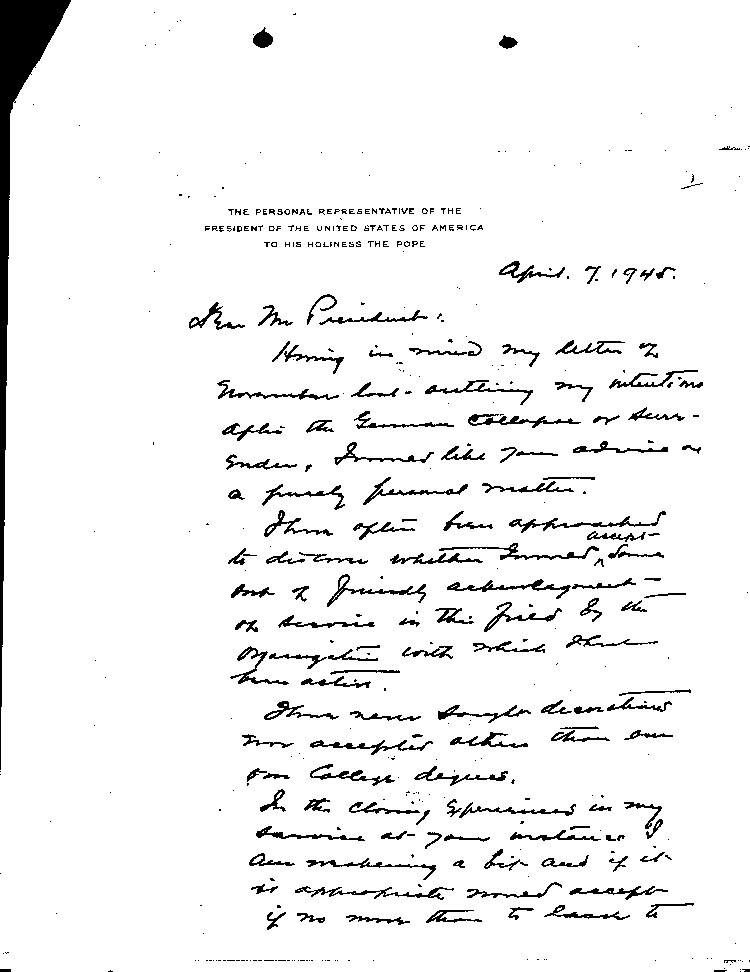 1
THE PERSONAL REPRESENTATIVE OF THE
PRESIDENT OF THE UNITED STATES OF AMERICA
TO HIS HOLINESS THE POPE
April. 7. 1945.
Dear Mr President:
Having in mind my letter of
November last - outlining my intentions
after the German collapse or surr-
ender, I would like your advice on
a purely personal matter.
I have often been approached
accept
to discuss whether I would some
out of friendly acknowledgment
of service in this field by the
organization with which I have
been active.
I have never sought decorations
nor accepted others than our
own College degrees.
In the closing experiences in my
service at your instance I
am a bit and if it
is appropriate would accept
if no more than to leave to